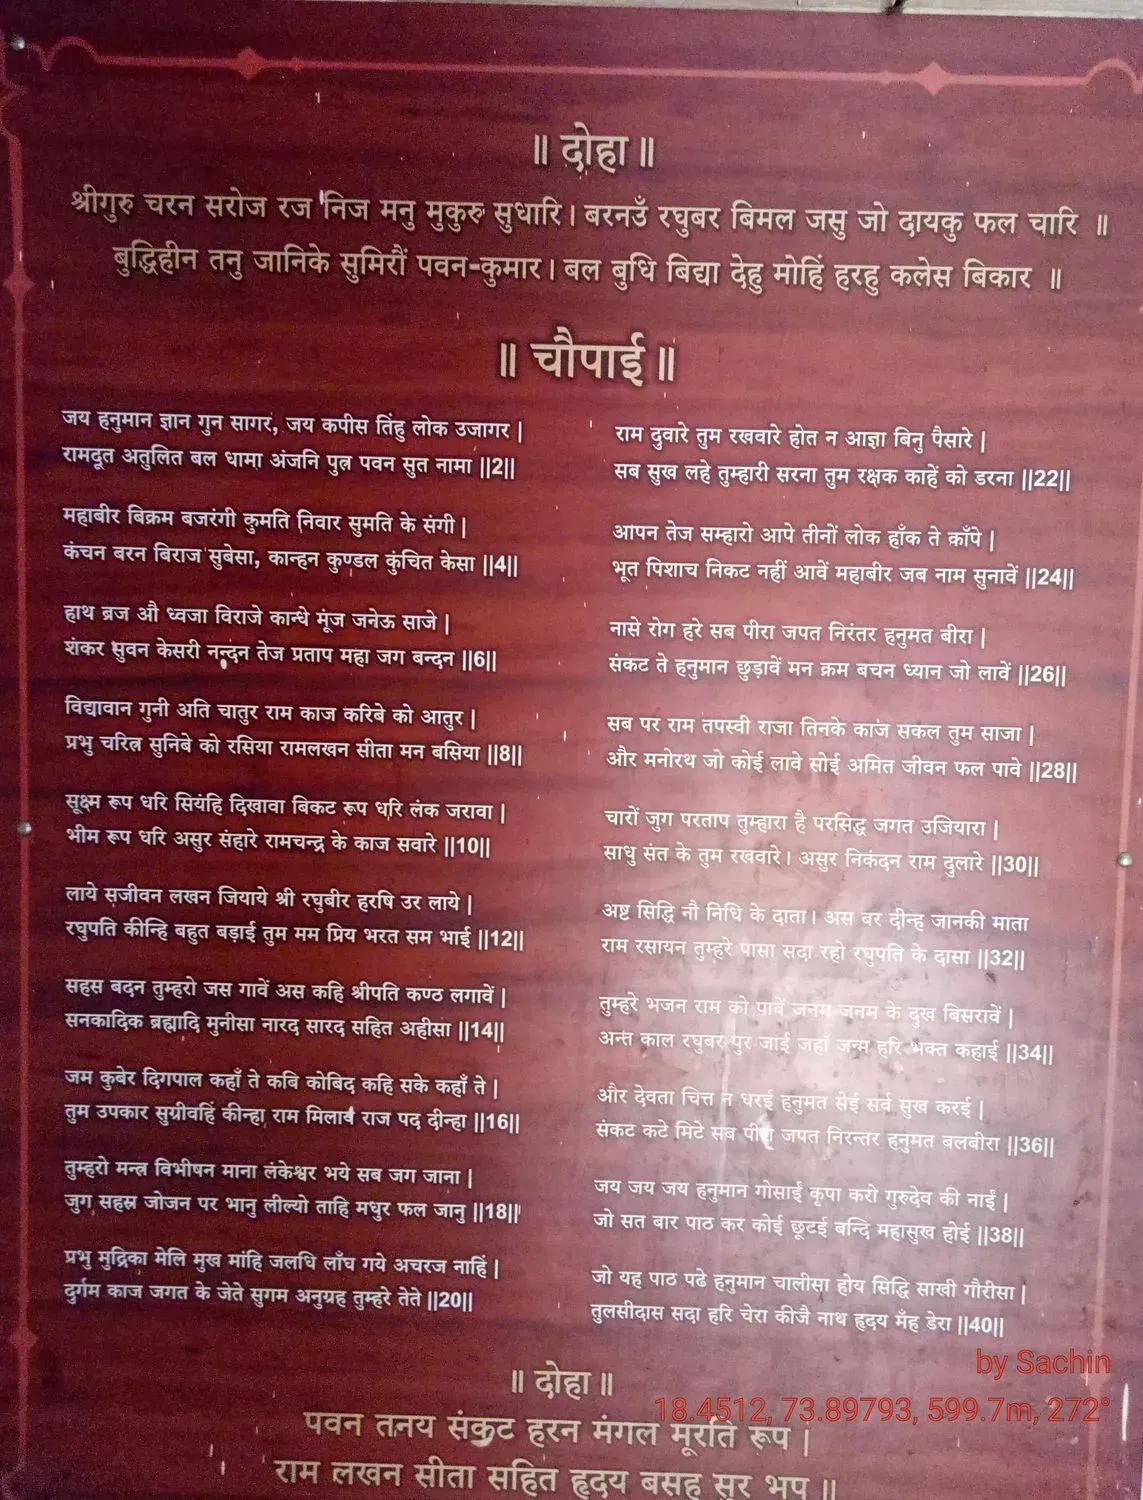 ॥ दोहा ॥
श्रीगुरु चरन सरोज रज निज मनु मुकुरु सुधारि। बरनउँ रघुबर बिमल जसु जो दायकु फल चारि ॥
बुद्धिहीन तनु जानिके सुमिरौं पवन-कुमार। बल बुधि बिद्या देहु मोहिं हरहु कलेस बिकार ॥
॥ चौपाई ॥
जय हनुमान ज्ञान गुन सागर, जय कपीस तिंहु लोक उजागर |
रामदूत अतुलित बल धामा अंजनि पुत्र पवन सुत नामा ||2||
महाबीर बिक्रम बजरंगी कुमति निवार सुमति के संगी |
कंचन बरन बिराज सुबेसा, कान्हन कुण्डल कुंचित केसा ||4||
हाथ ब्रज औ ध्वजा विराजे कान्धे मूंज जनेऊ साजे |
शंकर सुवन केसरी नन्दन तेज प्रताप महा जग बन्दन ||6||
विद्यावान गुनी अति चातुर राम काज करिबे को आतुर |
प्रभु चरित्र सुनिबे को रसिया रामलखन सीता मन बसिया ||8||
सूक्ष्म रूप धरि सियंहि दिखावा बिकट रूप धरि लंक जरावा |
भीम रूप धरि असुर संहारे रामचन्द्र के काज सवारे ||10||
लाये सजीवन लखन जियाये श्री रघुबीर हरषि उर लाये |
रघुपति कीन्हि बहुत बड़ाई तुम मम प्रिय भरत सम भाई ||12||
सहस बदन तुम्हरो जस गावें अस कहि श्रीपति कण्ठ लगावें |
सनकादिक ब्रह्मादि मुनीसा नारद सारद सहित अहीसा ||14||
जम कुबेर दिगपाल कहाँ ते कबि कोबिद कहि सके कहाँ ते |
तुम उपकार सुग्रीवहिं कीन्हा राम मिलाव राज पद दीन्हा ||16||
तुम्हरो मन्त्र विभीषन माना लंकेश्वर भये सब जग जाना |
जुग सहस्र जोजन पर भानु लील्यो ताहि मधुर फल जानु ||18||
प्रभु मुद्रिका मेलि मुख मांहि जलधि लाँघ गये अचरज नाहिं |
दुर्गम काज जगत के जेते सुगम अनुग्रह तुम्हरे तेते ||20||
राम दुवारे तुम रखवारे होत न आज्ञा बिनु पैसारे |
सब सुख लहे तुम्हारी सरना तुम रक्षक काहें को डरना ||22||
आपन तेज सम्हारो आपे तीनों लोक हाँक ते काँपे |
भूत पिशाच निकट नहीं आवें महाबीर जब नाम सुनावें ||24||
नासे रोग हरे सब पीरा जपत निरंतर हनुमत बीरा |
संकट ते हनुमान छुड़ावें मन क्रम बचन ध्यान जो लावें ||26||
सब पर राम तपस्वी राजा तिनके काज सकल तुम साजा |
और मनोरथ जो कोई लावे सोई अमित जीवन फल पावे ||28||
चारों जुग परताप तुम्हारा है परसिद्ध जगत उजियारा |
साधु संत के तुम रखवारे। असुर निकंदन राम दुलारे ||30||
अष्ट सिद्धि नौ निधि के दाता। अस बर दीन्ह जानकी माता
राम रसायन तुम्हरे पासा सदा रहो रघुपति के दासा ||32||
तुम्हरे भजन राम को पावें जनम जनम के दुख बिसरावें |
अन्त काल रघुबर पुर जाई जहाँ जन्म हरि भक्त कहाई ||34||
और देवता चित्त न धरई हनुमत सेई सर्व सुख करई |
संकट कटे मिटे सब पीरा जपत निरन्तर हनुमत बलबीरा ||36||
जय जय जय हनुमान गोसाईं कृपा करो गुरुदेव की नाईं |
जो सत बार पाठ कर कोई छूटई बन्दि महासुख होई ||38||
जो यह पाठ पढे हनुमान चालीसा होय सिद्धि साखी गौरीसा |
तुलसीदास सदा हरि चेरा कीजै नाथ हृदय मँह डेरा ||40||
॥ दोहा ॥
पवन तनय संकट हरन मंगल मूरति रूप |
राम लखन सीता सहित हृदय बसह सुर भूप ॥
by Sachin
18.4512, 73.89793, 599.7m, 272°